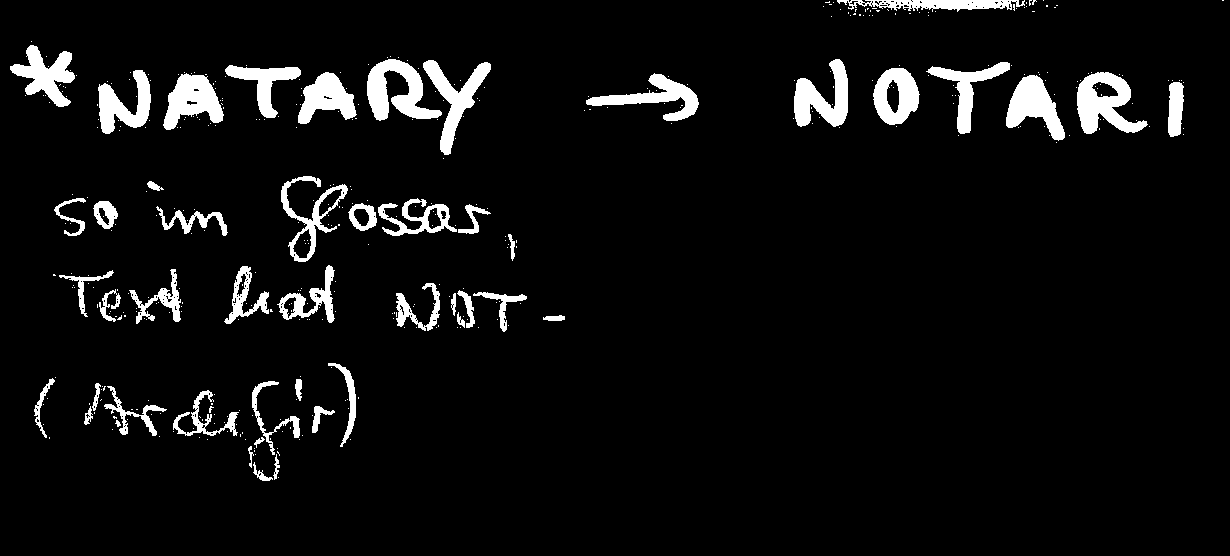 *NATARY → NOTARI
so im Glossar,
Text hat NOT-